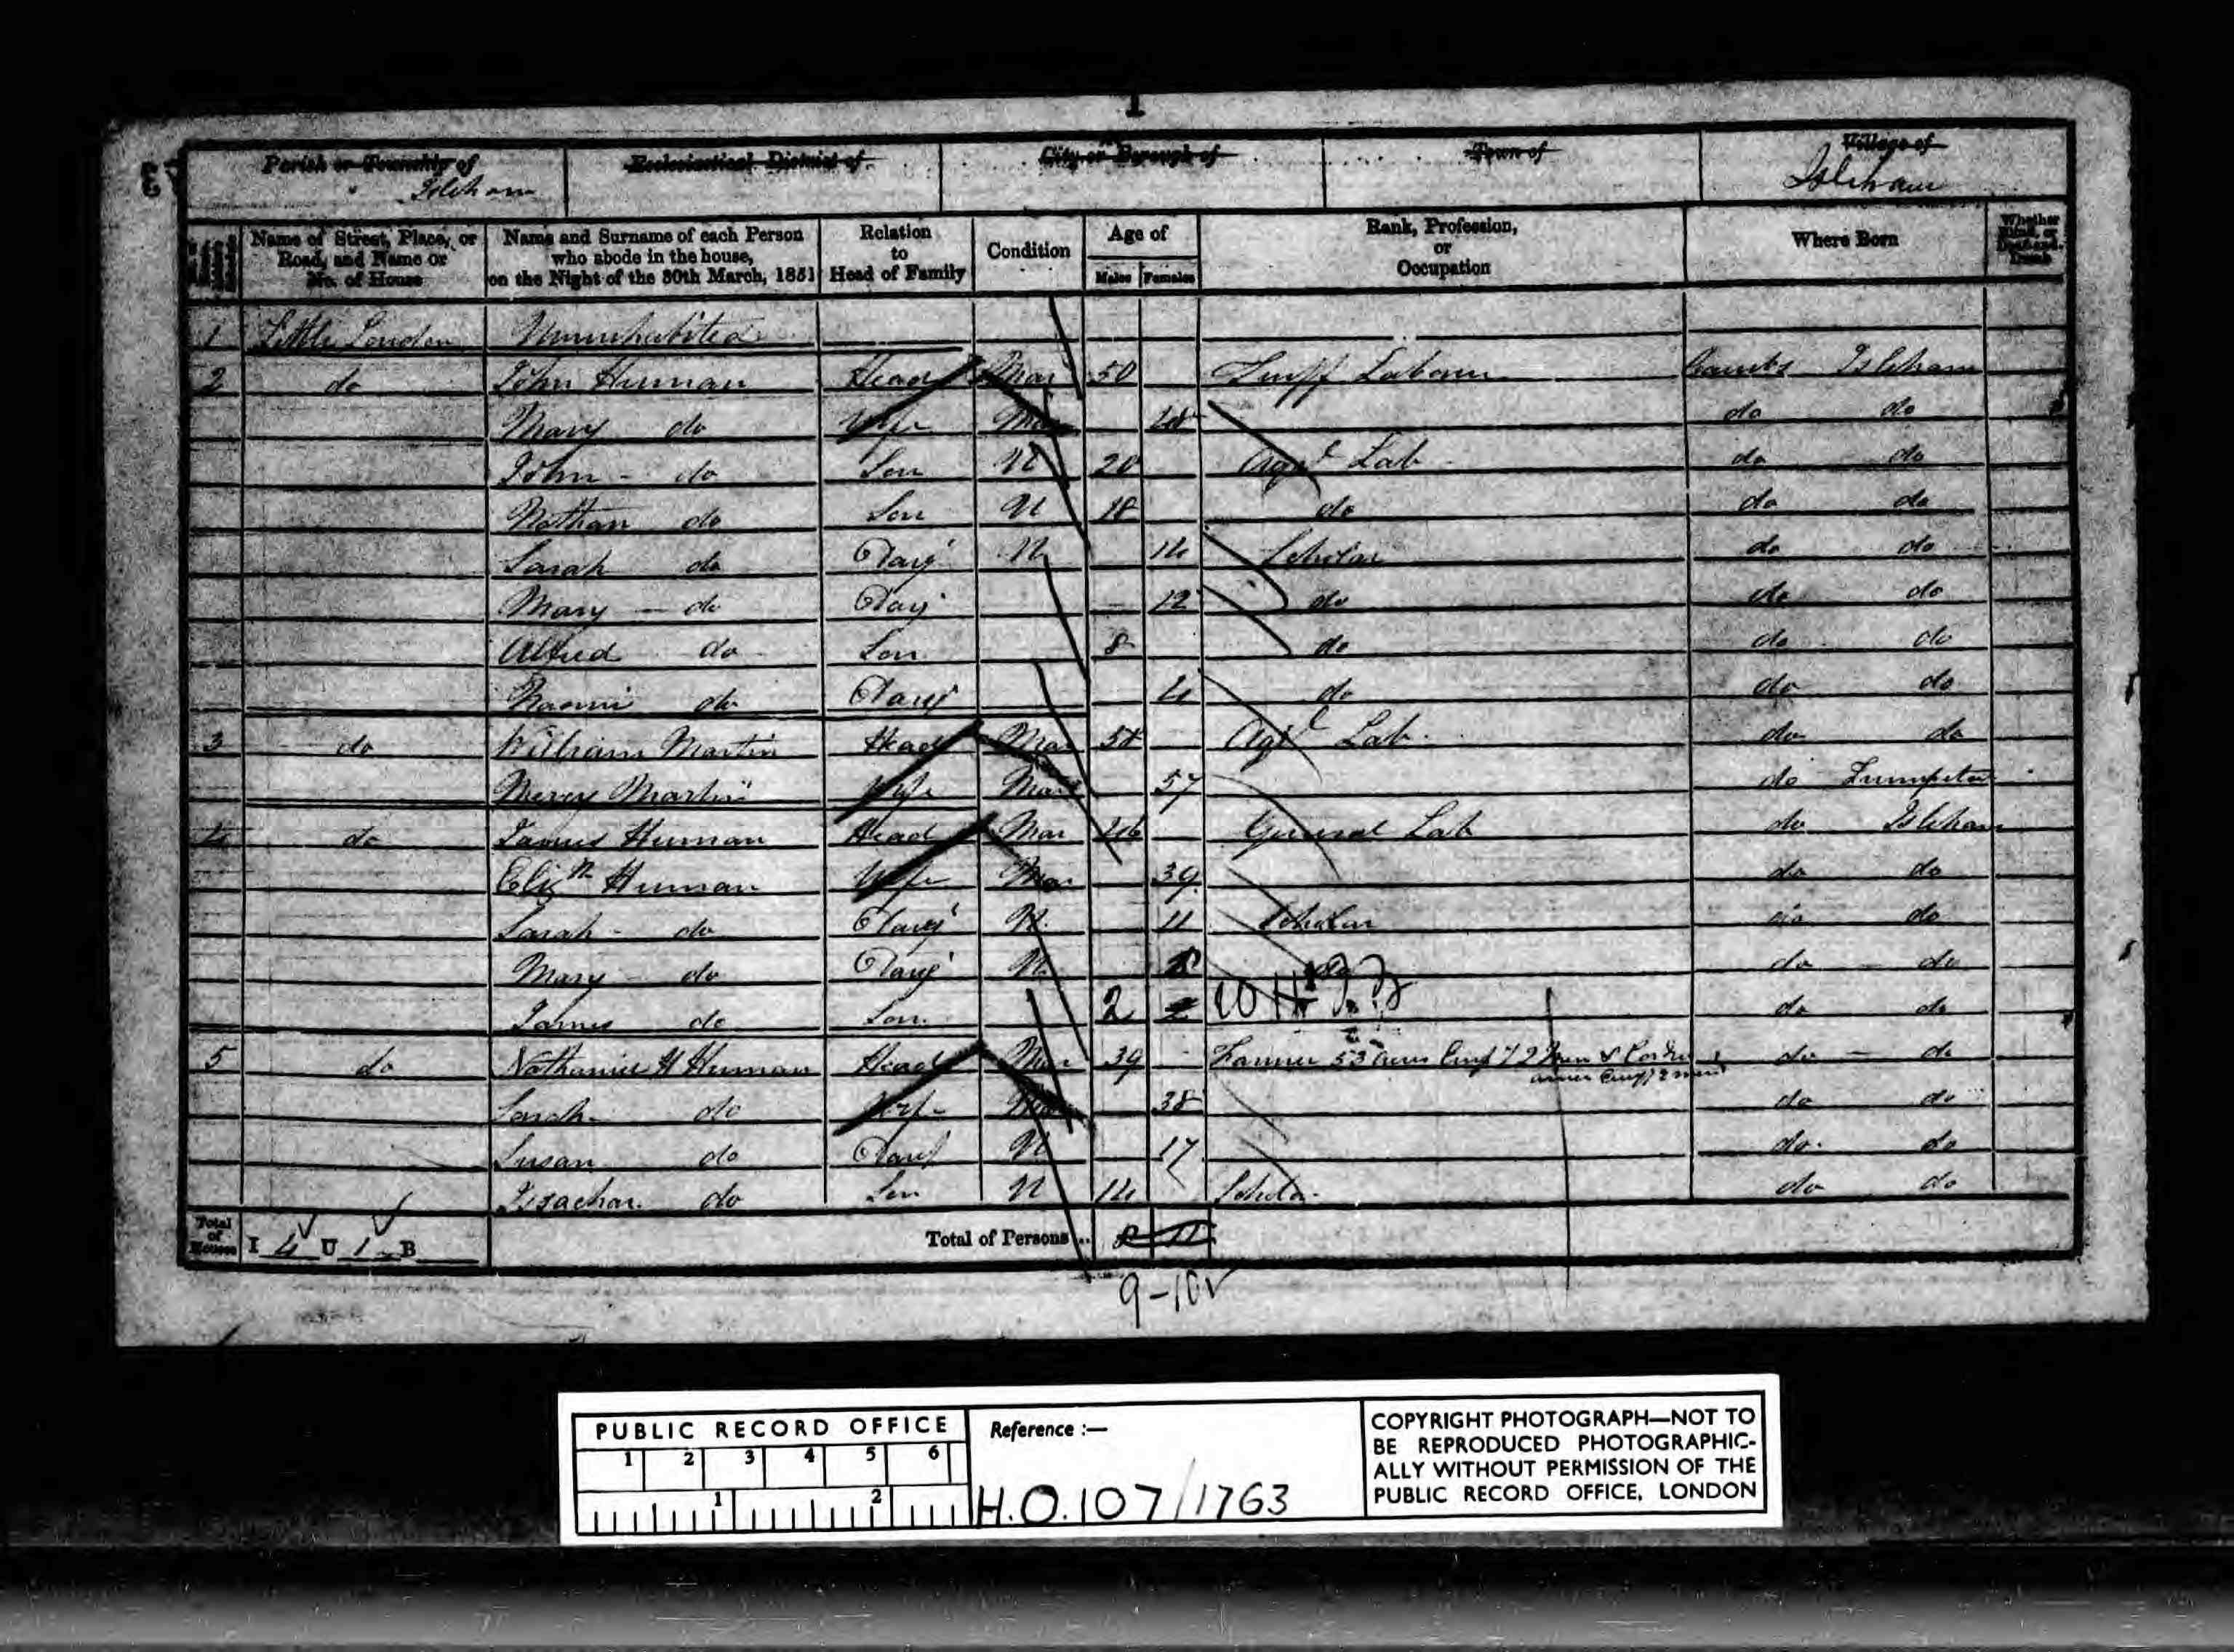 1
Parish or Township of
Isleham
Ecclesiastical District of
City or Borough of
Town of
Village of
Isleham
Name of Street, Place, or Road, and Name or No. of House
Name and Surname of each Person who abode in the house, on the Night of the 30th March, 1851
Relation to Head of Family
Condition
Age of
Males Females
Rank, Profession, or Occupation
Where Born
Whether Blind, or Deaf-and-Dumb
1 Little London Uninhabited
2 do John Human Head Mar 50 Turff Labour Cambs Isleham
Mary do Wife Mar do do
John - do Son U 20 Agrl Lab do do
Nathan do Son U 18 do do do
Sarah do Daur U 14 Scholar do do
Mary - do Daur 12 do do do
Alfred do Son 8 do do do
Naomi do Daur 4 do do do
3 do William Martin Head Mar Agrl Lab. do do
Mercy Martin Wife Mar 57 do
4 do James Human Head Mar 46 General Lab do Isleham
Elizh Human Wife Mar 39 do do
Sarah - do Daur U. 11 Scholar do do
Mary - do Daur U. 8 do do - do
James do Son. 2 do do
5 do Nathaniel H Human Head Mar 39 Farmer 53 acres Empy 2 Men do - do
Sarah do Wife Mar 38 do do
Susan do Daur U 17 do do
Issachar do Son U 14 Scholar do do
Total of Houses I 4 U 1 B
Total of Persons... 8 11
9-10
PUBLIC RECORD OFFICE
1 2 3 4 5 6
1 2
Reference :-
H.O.107/1763
COPYRIGHT PHOTOGRAPH—NOT TO
BE REPRODUCED PHOTOGRAPHIC-
ALLY WITHOUT PERMISSION OF THE
PUBLIC RECORD OFFICE, LONDON